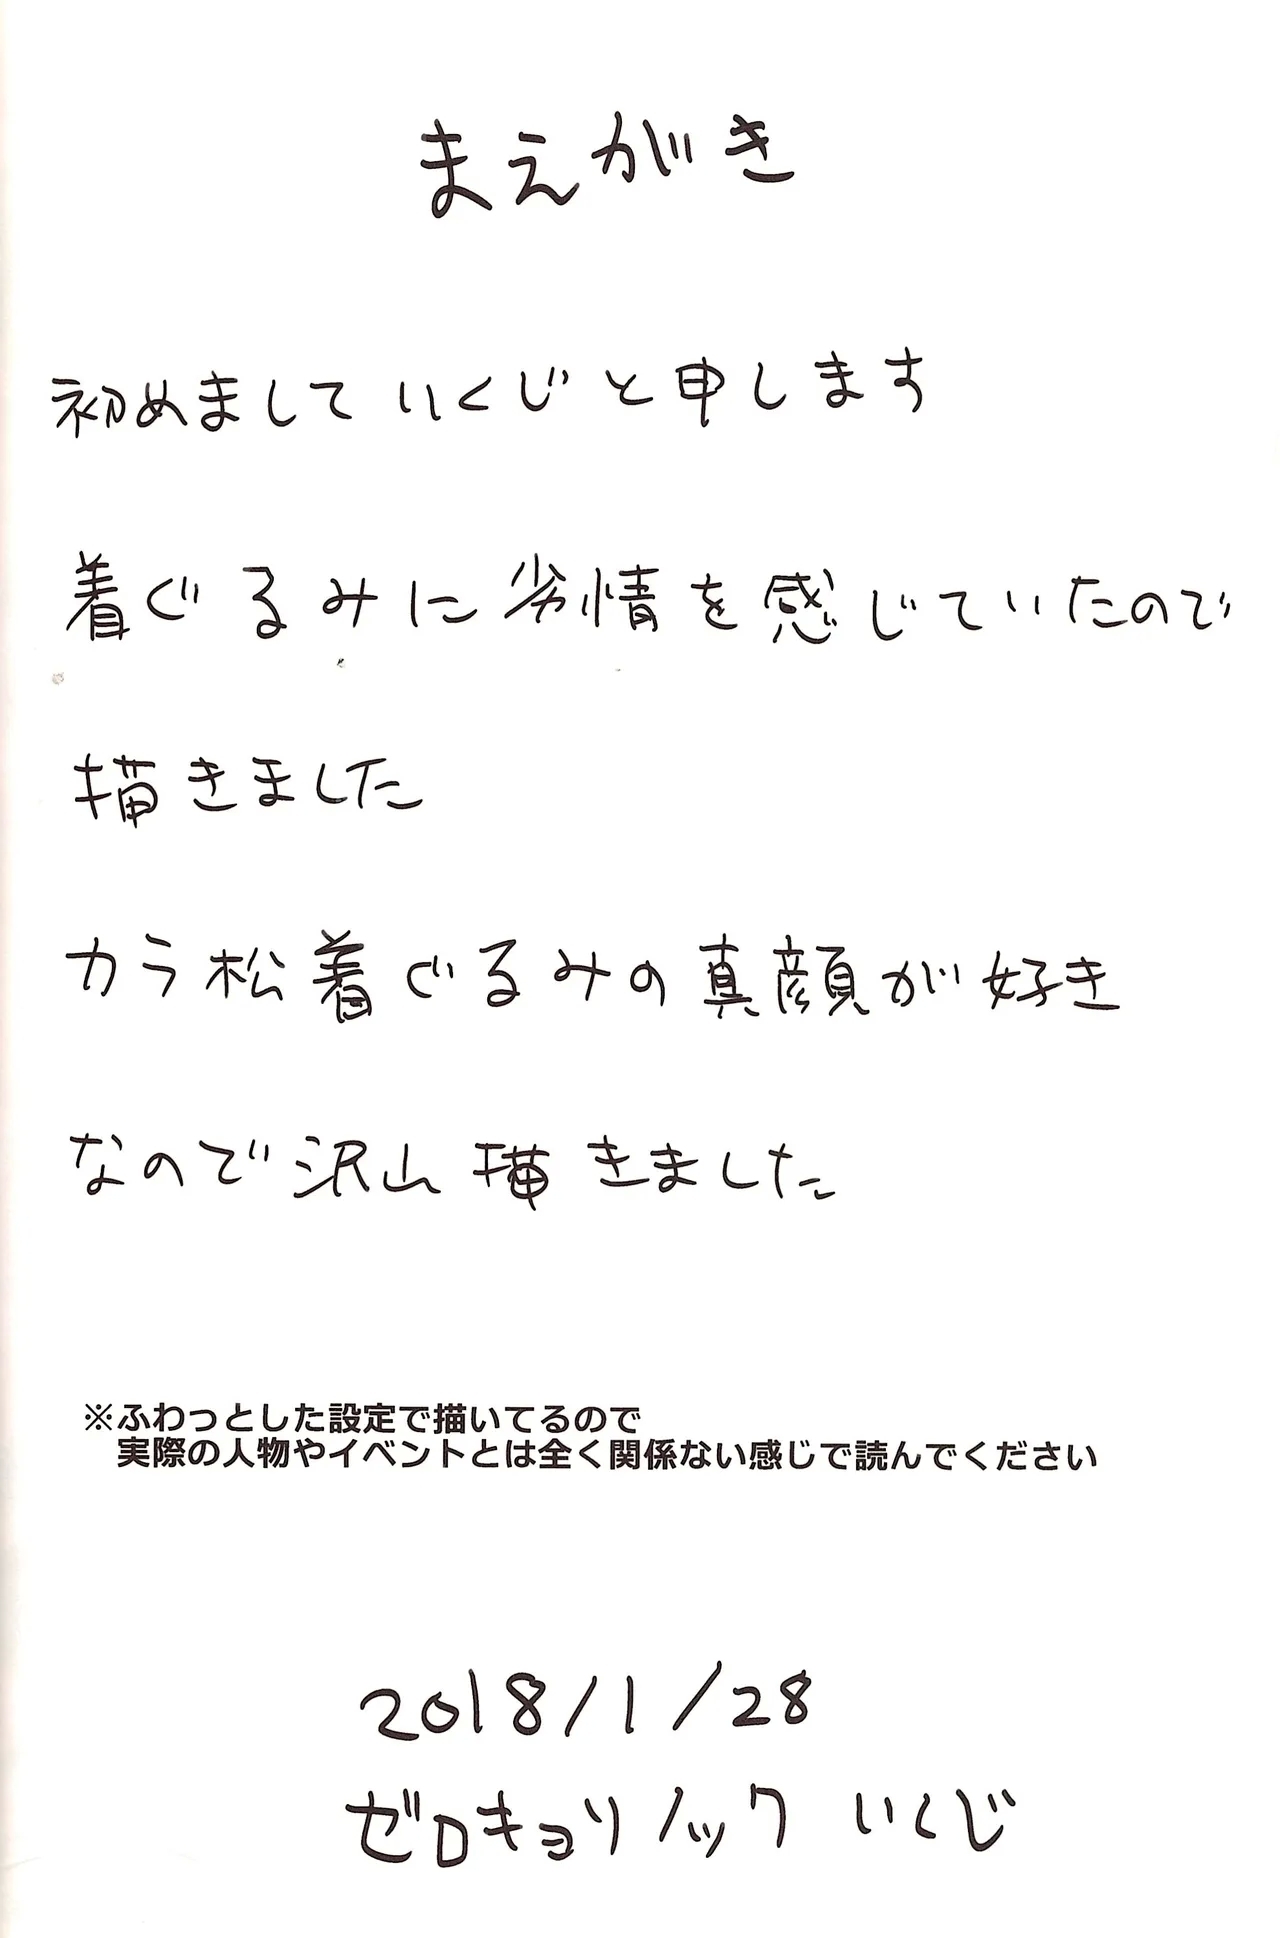 まえがき
初めまして いくじと申します
着ぐるみに劣情を感じていたので
描きました
カラ松着ぐるみの真顔が好き
なので沢山描きました
※ふわっとした設定で描いてるので
実際の人物やイベントとは全く関係ない感じで読んでください
2018/1/28
ゼロキョリノック いくじ